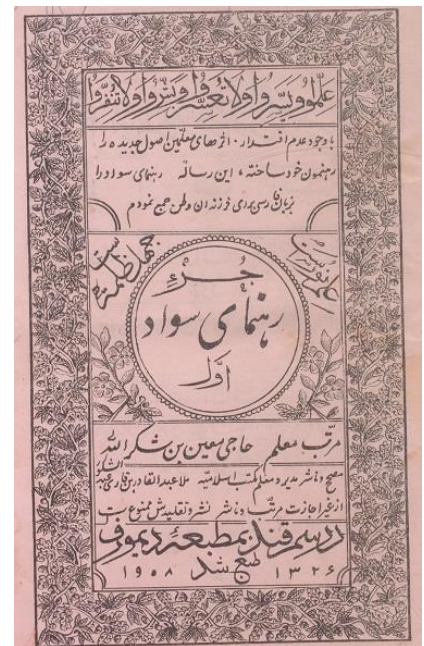 علّموا ويسّروا ولا تعسّروا وبشّروا ولا تنفّروا
با وجود عدم اقتدار، اثرهای معلّمین اصول جدیده را
رهنمون خود ساخته، این رساله رهنمای سواد را
بزبان فارسی برای فرزندان وطن جمع نمودم
علم نور است
جهل ظلمت است
جزء
رهنمای سواد
اوّل
مرتّب معلم حاجی معین بن شکرالله
مصحح و ناشر مدیر و معلم مکتب اسلامیّه ملا عبدالقادر بن قاری عبدالشکور
از غیر اجازت مرتّب و ناشر نشر و تقلیدش ممنوع است
در سمرقند بمطبعهٔ دیموروف
طبع شد
۱۳۲۶
۱۹۰۸